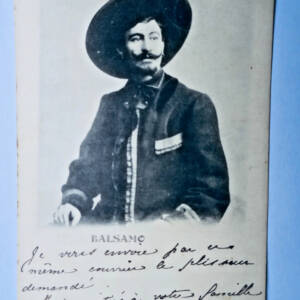 BALSAMO
Je vous envoie par ce
même courrier le plisseur
demandé
votre famille